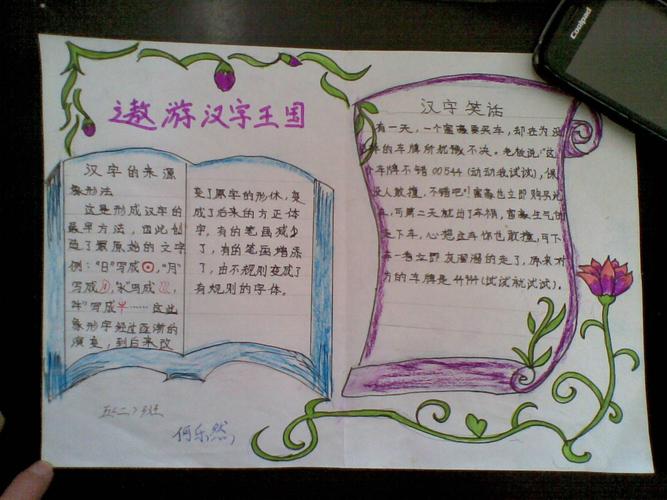 遨游汉字王国
汉字的来源
象形法
这是形成汉字的
最早方法，由此创
造了最原始的文字
例："日"写成 "月"
写成 "水"写成
"牛"写成 …… 这些
象形字经过逐渐的
演变，到后来改
变了原字的形体，变
成了后来的方正体
字，有的笔画减少
了，有的笔画增添
了，由不规则变成了
有规则的字体。
汉字笑话
有一天，一个富豪要买车，却在为选
车的车牌所犹豫不决。老板说："这
个车牌不错00544(动动我试试)，保
没人敢撞，不错吧！"富豪也立即购买此
车，可第二天就出了车祸，富豪生气的
走下车，心想这车你也敢撞，可下
车一看立即灰溜溜的走了，原来对
方的车牌是44944(试试就试试)。
五(二)班
何乐然
Coolpad